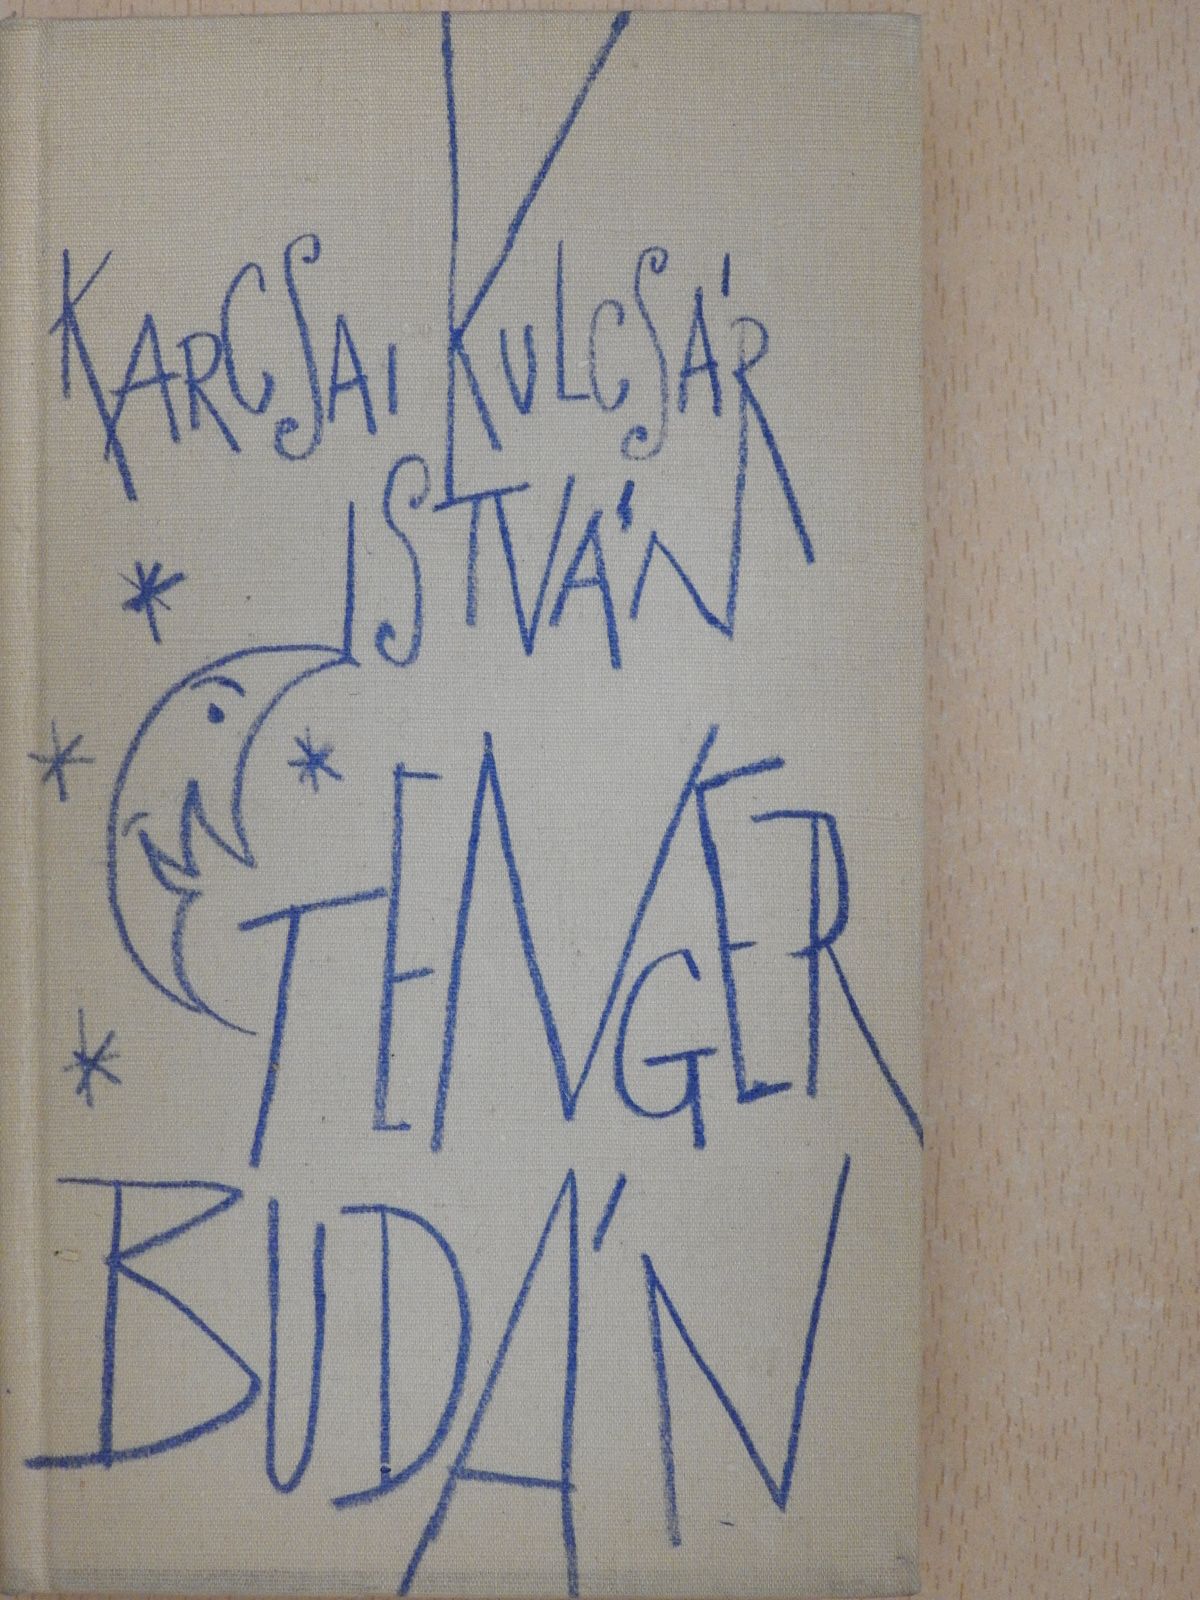 KARCSAI KULCSÁR
ISTVÁN
TENGER
BUDÁN